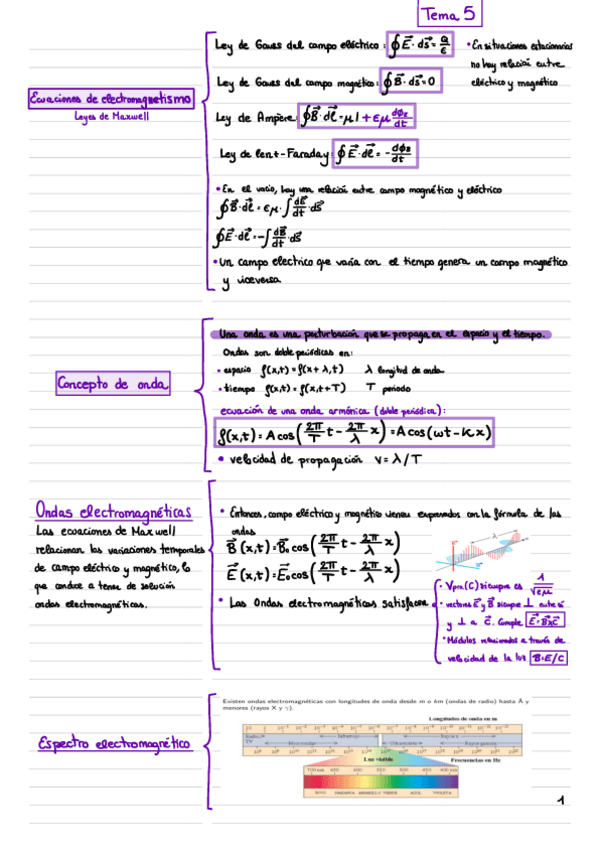 Tema 5
Ecuaciones de electromagnetismo
Leyes de Maxwell
Ley de Gauss del campo eléctrico: ∮E⃗·ds⃗=Q/ε
• En situaciones estacionarias
no hay relación entre
eléctrico y magnético
Ley de Gauss del campo magnético: ∮B⃗·ds⃗=0
Ley de Ampère: ∮B⃗·dl⃗=μI+εμ dϕ_E/dt
Ley de lent-Faraday: ∮E⃗·dl⃗=-dϕ_B/dt
• En el vacio, hay una relación entre campo magnético y eléctrico
∮B⃗·dl⃗=εμ·∫dE⃗/dt·ds⃗
∮E⃗·dl⃗=-∫dB⃗/dt·ds⃗
• Un campo electrico que varía con el tiempo genera un campo magnético
y viceversa
Concepto de onda
Una onda es una perturbación que se propaga en el espacio y el tiempo.
Ondas son doble periódicas en:
• espacio f(x,t)=f(x+λ,t) λ longitud de onda
• tiempo f(x,t)=f(x,t+T) T periodo
ecuación de una onda armónica (doble periódica):
f(x,t)=A cos(2π/T t - 2π/λ x)=A cos(ωt-Kx)
• velocidad de propagación v=λ/T
Ondas electromagnéticas
Las ecuaciones de Maxwell
relacionan las variaciones temporales
de campo eléctrico y magnético, lo
que conduce a tener de solución
ondas electromagnéticas.
• Entonces, campo eléctrico y magnético vienen expresados con la fórmula de las
ondas
B⃗(x,t)=B⃗₀cos(2π/T t - 2π/λ x)
E⃗(x,t)=E⃗₀cos(2π/T t - 2π/λ x)
• Las Ondas electromagnéticas satisfacen
λ
• Vpro(C) siempre es 1/√εμ
• vectores E⃗ y B⃗ siempre ⊥ entre si
y ⊥ a C⃗. Cumple E⃗=B⃗×C⃗
• Módulos relacionados a través de
velocidad de la luz B=E/C
Espectro electromagnético
Existen ondas electromagnéticas con longitudes de onda desde m o km (ondas de radio) hasta Å y
menores (rayos X y γ).
Longitudes de onda en m
Luz visible
Frecuencias en Hz
ROJO NARANJA AMARILLO VERDE AZUL VIOLETA
1